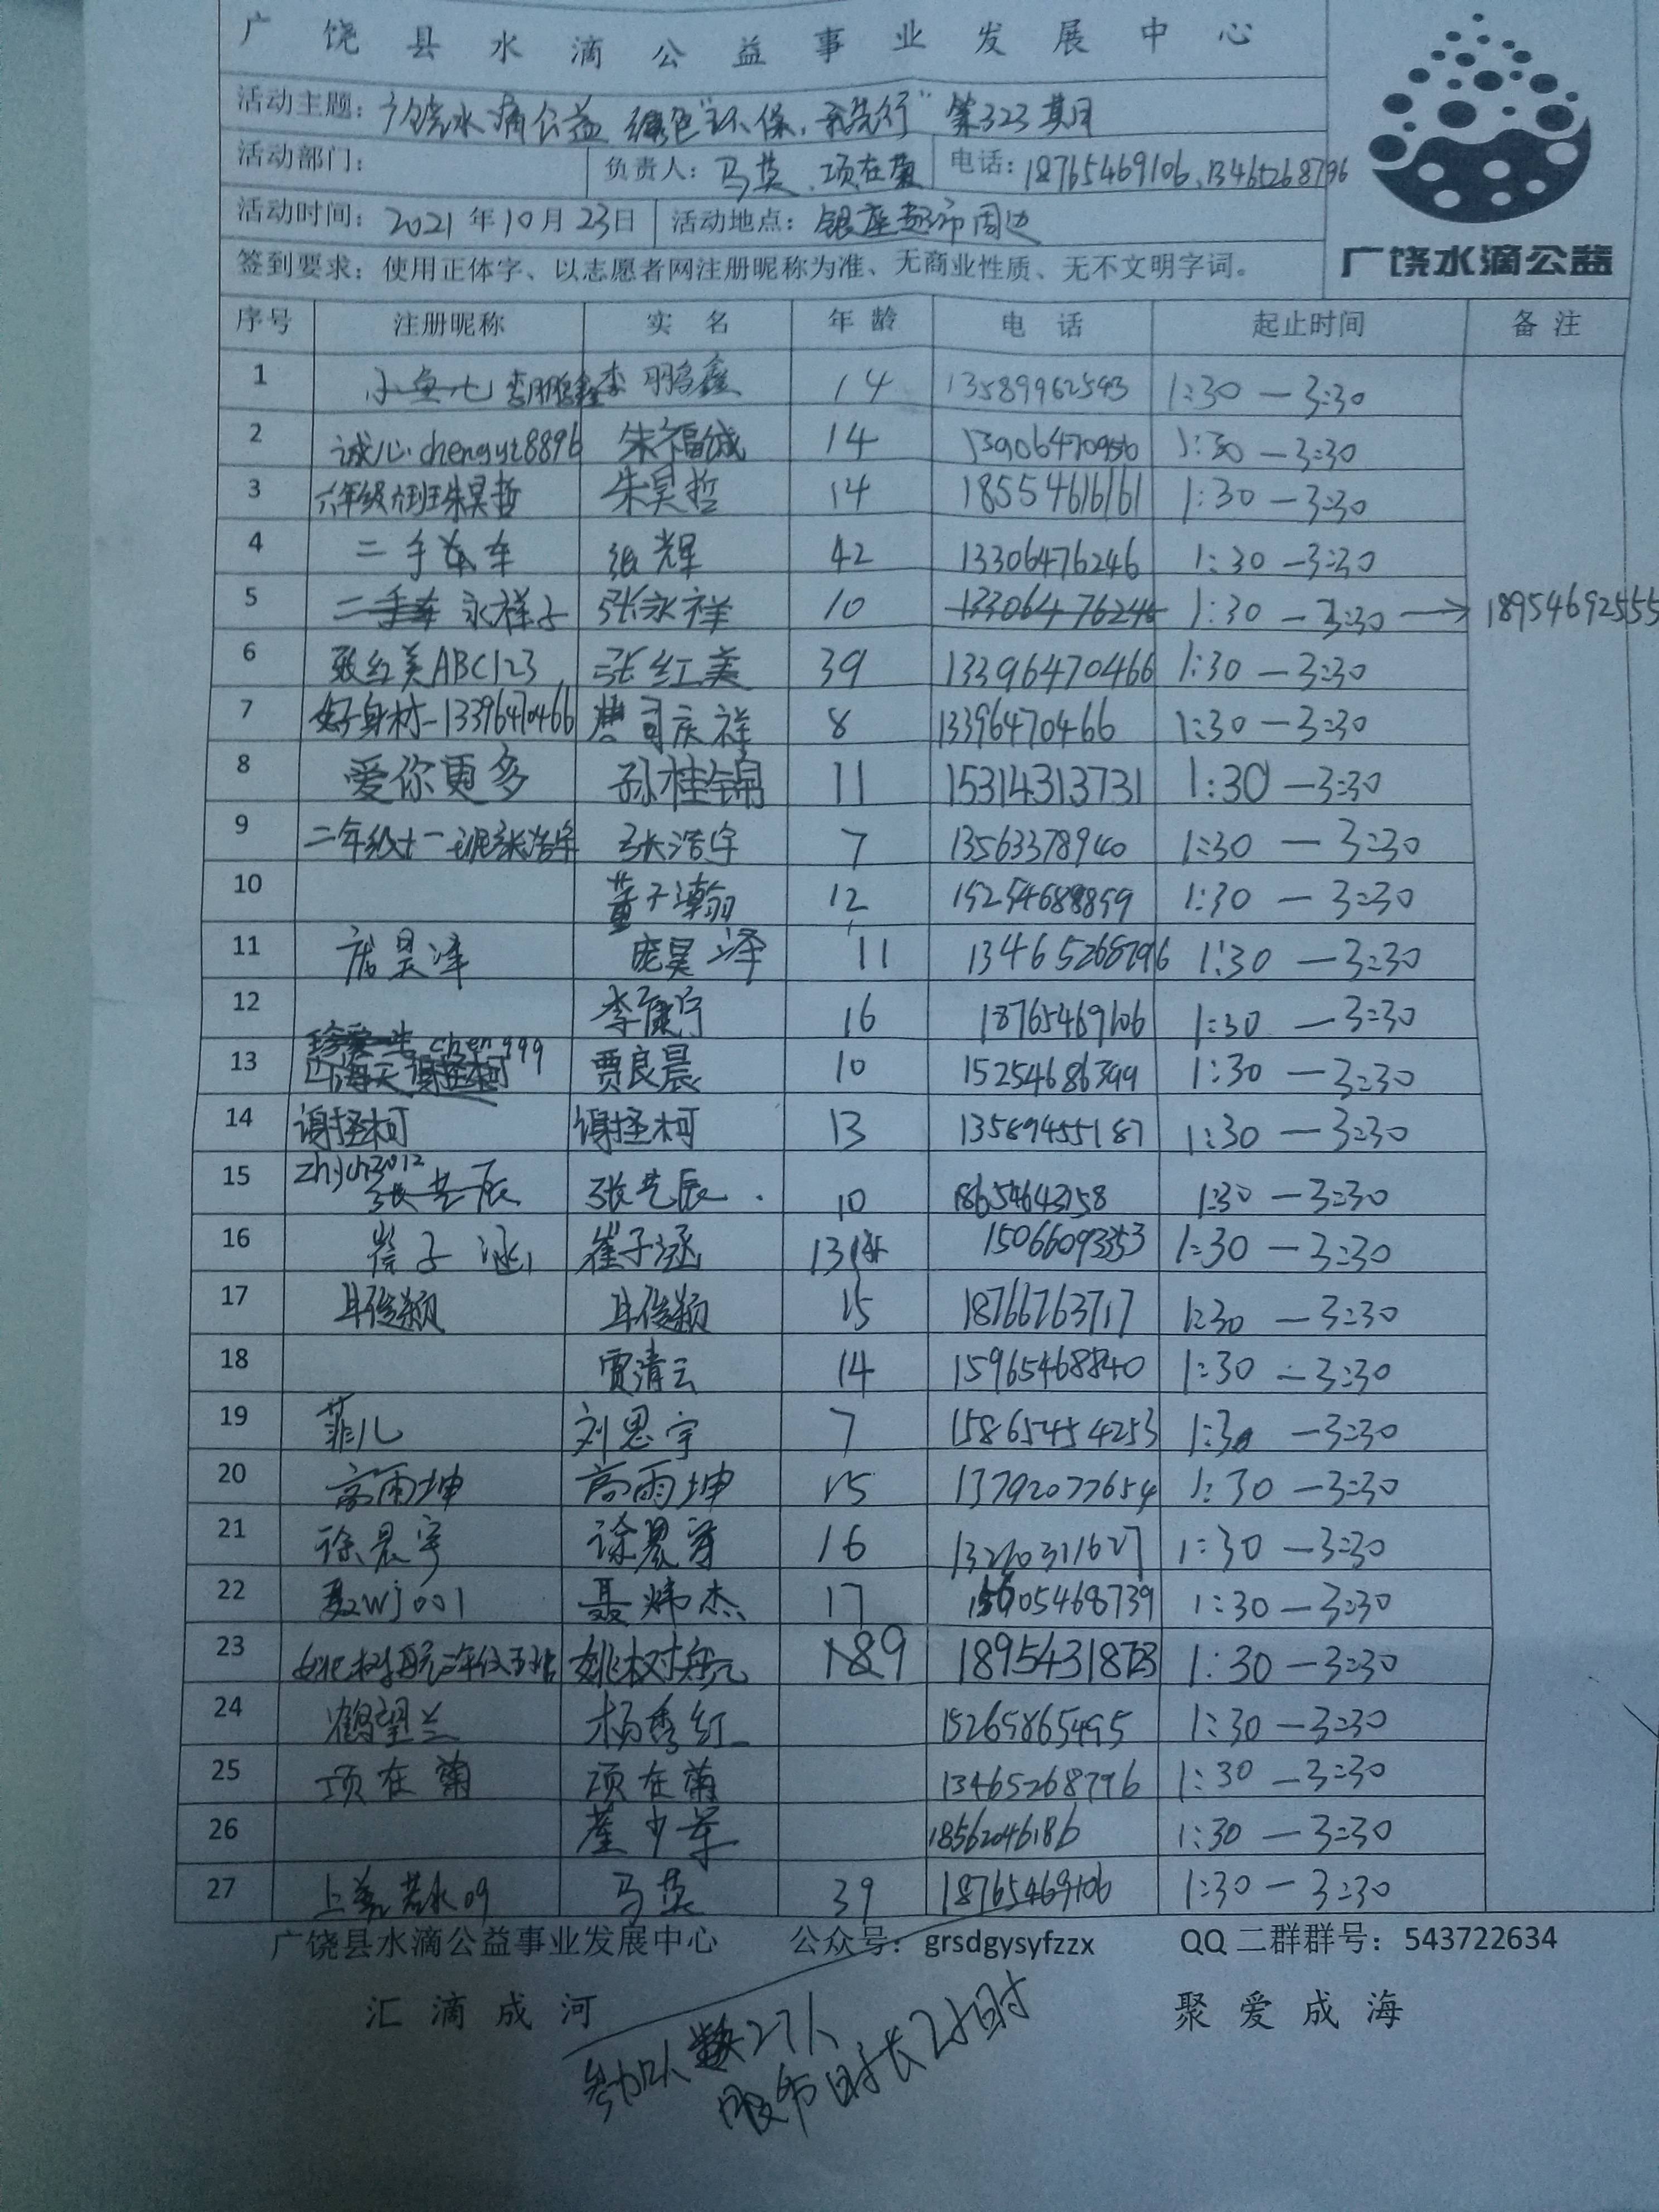 广饶县水滴公益事业发展中心
活动主题：广饶水滴公益 绿色"环保，我先行" 第323期
活动部门： 负责人：马英、项在菊 电话：18765469106、13465268796
活动时间：2021年10月23日 活动地点：银座超市周边
广饶水滴公益
签到要求：使用正体字、以志愿者网注册昵称为准、无商业性质、无不文明字词。
序号 注册昵称 实名 年龄 电话 起止时间 备注
1 李鹏鑫 李鹏鑫 14 13589962593 1:30—3:30
2 诚心chengyt8896 朱福城 14 13906470950 1:30—3:30
3 六年级六班朱昊哲 朱昊哲 14 18554616161 1:30—3:30
4 二手车 张辉 42 13306476246 1:30—3:30
5 永祥子 张永祥 10 13306476246 1:30—3:30 → 18954692555
6 张红美ABC123 张红美 39 13396470466 1:30—3:30
7 好身材-13396470466 司庆祥 8 13396470466 1:30—3:30
8 爱你更多 孙桂锦 11 15314313731 1:30—3:30
9 二年级十一班张浩宇 张浩宇 7 13563378940 1:30—3:30
10 董子瀚 12 15254688859 1:30—3:30
11 庞昊泽 庞昊泽 11 13465268796 1:30—3:30
12 李康宁 16 18765469106 1:30—3:30
13 chenggg 贾良晨 10 15254686399 1:30—3:30
14 谢择柯 谢择柯 13 13589455187 1:30—3:30
15 zhych2012 张艺辰 10 18654643158 1:30—3:30
16 崔子涵 崔子涵 13 15066093353 1:30—3:30
17 耳俊颖 耳俊颖 15 18766763717 1:30—3:30
18 贾清云 14 15965468840 1:30—3:30
19 菲儿 刘思宇 7 15865454253 1:30—3:30
20 高雨坤 高雨坤 15 13792077654 1:30—3:30
21 徐晨宇 徐晨宇 16 13220311627 1:30—3:30
22 聂wj001 聂炜杰 17 15605468739 1:30—3:30
23 姚树航三年级五班 姚树航 9 18954318723 1:30—3:30
24 鹤望兰 杨秀红 15265865495 1:30—3:30
25 项在菊 项在菊 13465268796 1:30—3:30
26 崔少军 18562046186 1:30—3:30
27 上善若水09 马英 39 18765469106 1:30—3:30
广饶县水滴公益事业发展中心 公众号：grsdgysyfzzx QQ二群群号：543722634
汇滴成河 聚爱成海
参加人数27人
服务时长2小时